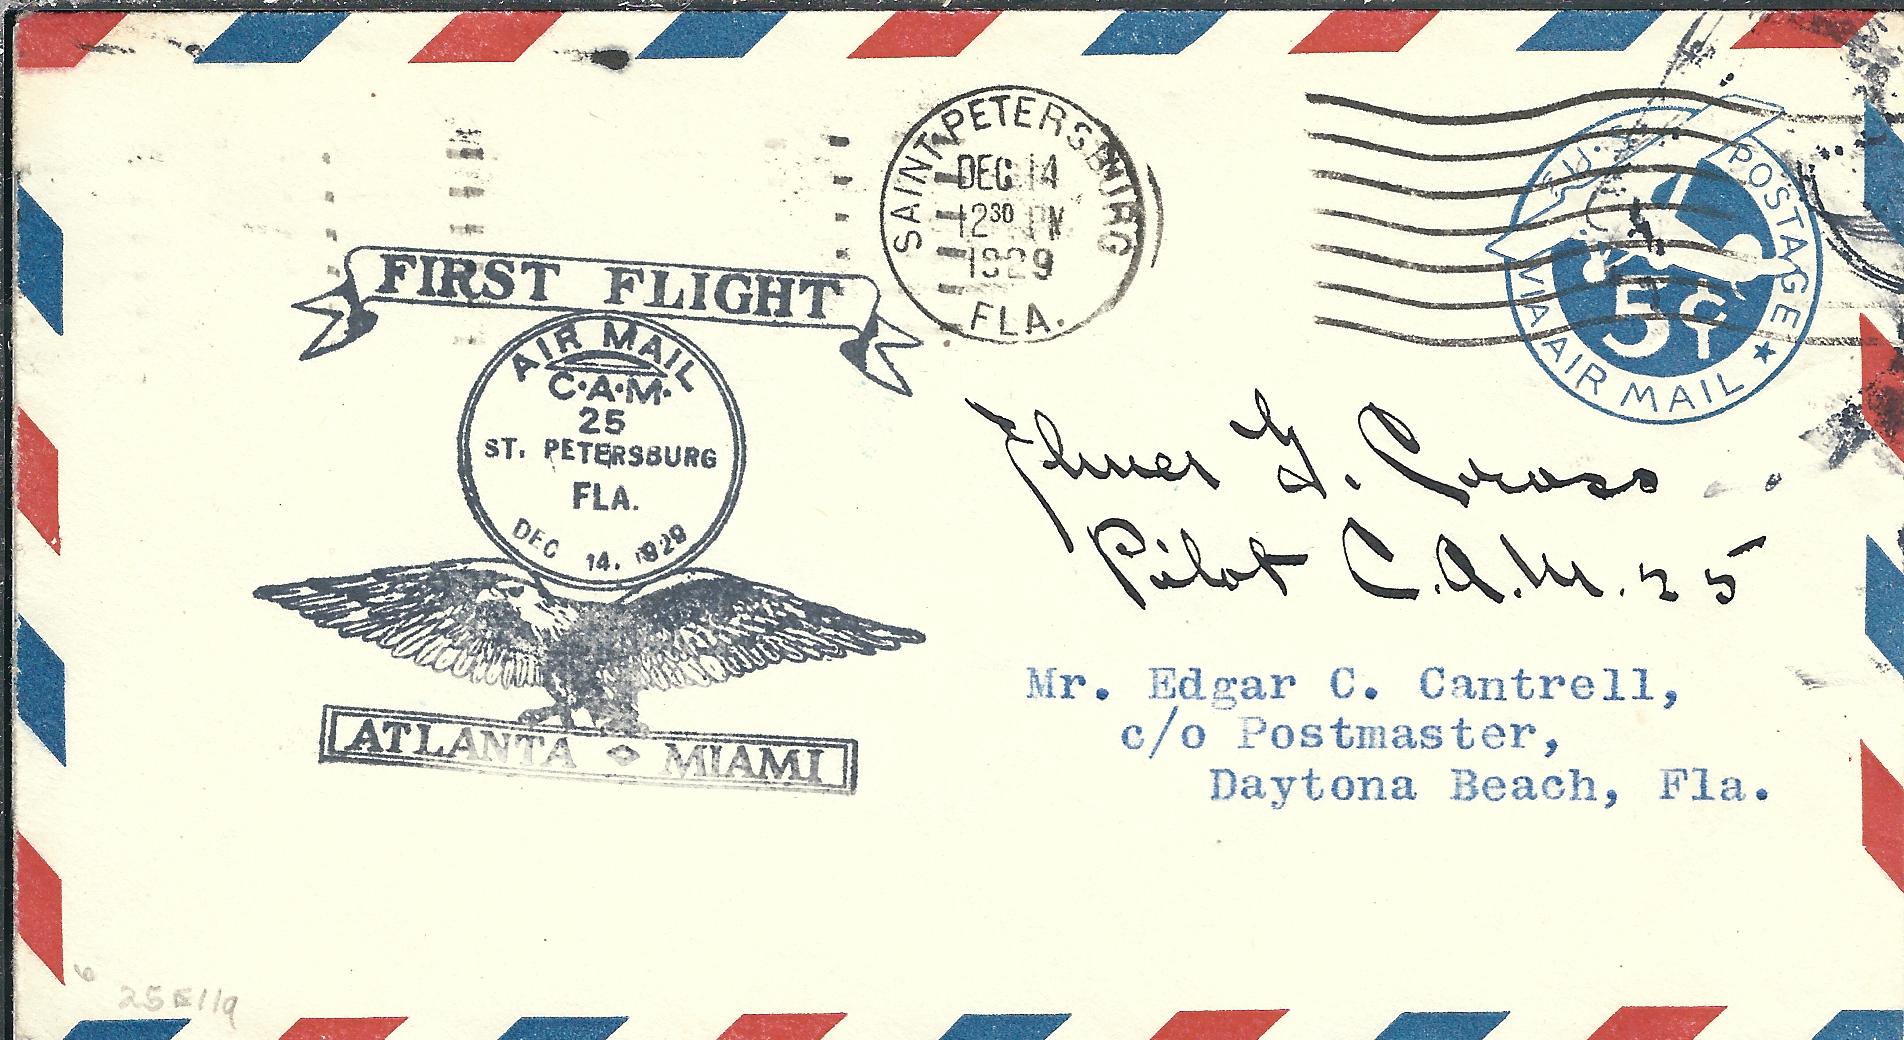 SAINT PETERSBURG
DEC 14
12 30 PM
1929
FLA.
U.S. POSTAGE
5¢
VIA AIR MAIL
FIRST FLIGHT
AIR MAIL
C.A.M.
25
ST. PETERSBURG
FLA.
DEC 14. 1929
ATLANTA MIAMI
Elmer G. Cross
Pilot C.A.M. 25
Mr. Edgar C. Cantrell,
c/o Postmaster,
Daytona Beach, Fla.